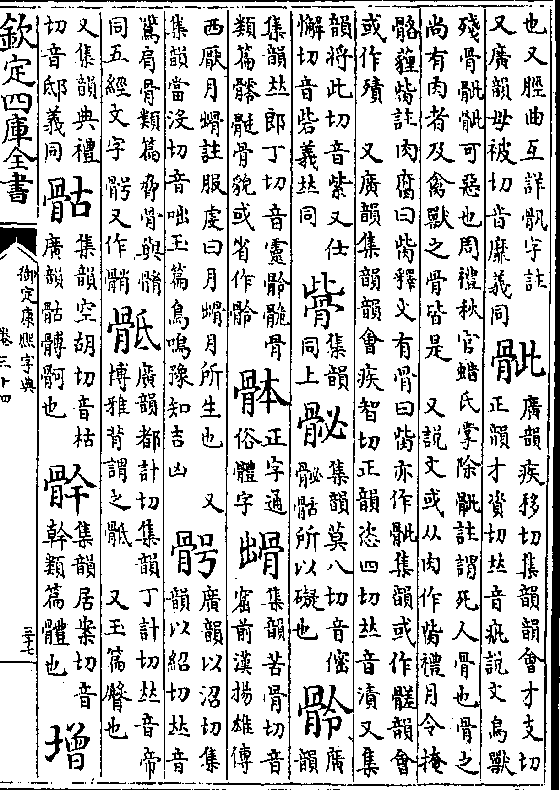 欽定四庫全書
御定康熙字典
卷三十四
三十七
也又脛曲互詳骫字註
又廣韻母被切音靡義同
骴
廣韻疾移切集韻韻會才支切
正韻才資切𠀤音疵說文鳥獸
殘骨骴骴可惡也周禮秋官蜡氏掌除骴註謂死人骨也骨之
尚有肉者及禽獸之骨皆是 又說文或从肉作胔禮月令掩
骼薶胔註肉腐曰胔釋文有骨曰胔亦作骴集韻或作髊韻會
或作殨 又廣韻集韻韻會疾智切正韻恣四切𠀤音漬又集
韻將此切音紫又仕
懈切音砦義𠀤同
集韻
同上
集韻莫八切音
骷所以礙也
廣
韻
集韻𠀤郎丁切音靈
類篇 骨貌或省作
骵
正字通
俗體字
集韻苦骨切音
窟前漢揚雄傳
西厭月 註服虔曰月 月所生也 又
集韻當沒切音咄玉篇鳥鳴豫知吉凶
廣韻以沼切集
韻以紹切𠀤音
鷕肩骨類篇脅骨與
同五經文字 又作
骶
廣韻都計切集韻丁計切𠀤音帝
博雅背謂之骶 又玉篇臀也
又集韻典禮
切音邸義同
骷
集韻空胡切音枯
廣韻骷髆 也
集韻居案切音
幹類篇體也
增